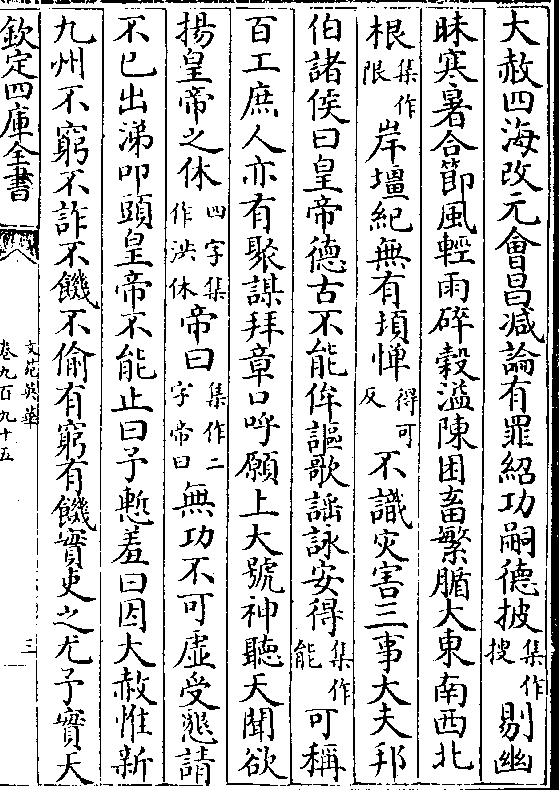 大赦四海改元會昌減論有罪紹功嗣德披集作搜剔幽
昧寒暑合節風輕雨碎穀溢陳囷畜繁腯大東南西北
根集作限岸壇紀無有㨃憚得可反不識灾害三事大夫邦
伯諸侯曰皇帝德古不能侔謳歌謡詠安得集作能可稱
百工庶人亦有聚謀拜章口呼願上大號神聽天聞欲
揚皇帝之休四字集作洪休帝曰集作二字帝曰無功不可虛受懇請
不已出涕叩頭皇帝不能止曰予慙羞曰因大赦惟新
九州不窮不詐不饑不偷有窮有饑實吏之尤予實天
欽定四庫全書
文苑英華
卷九百九十五
三